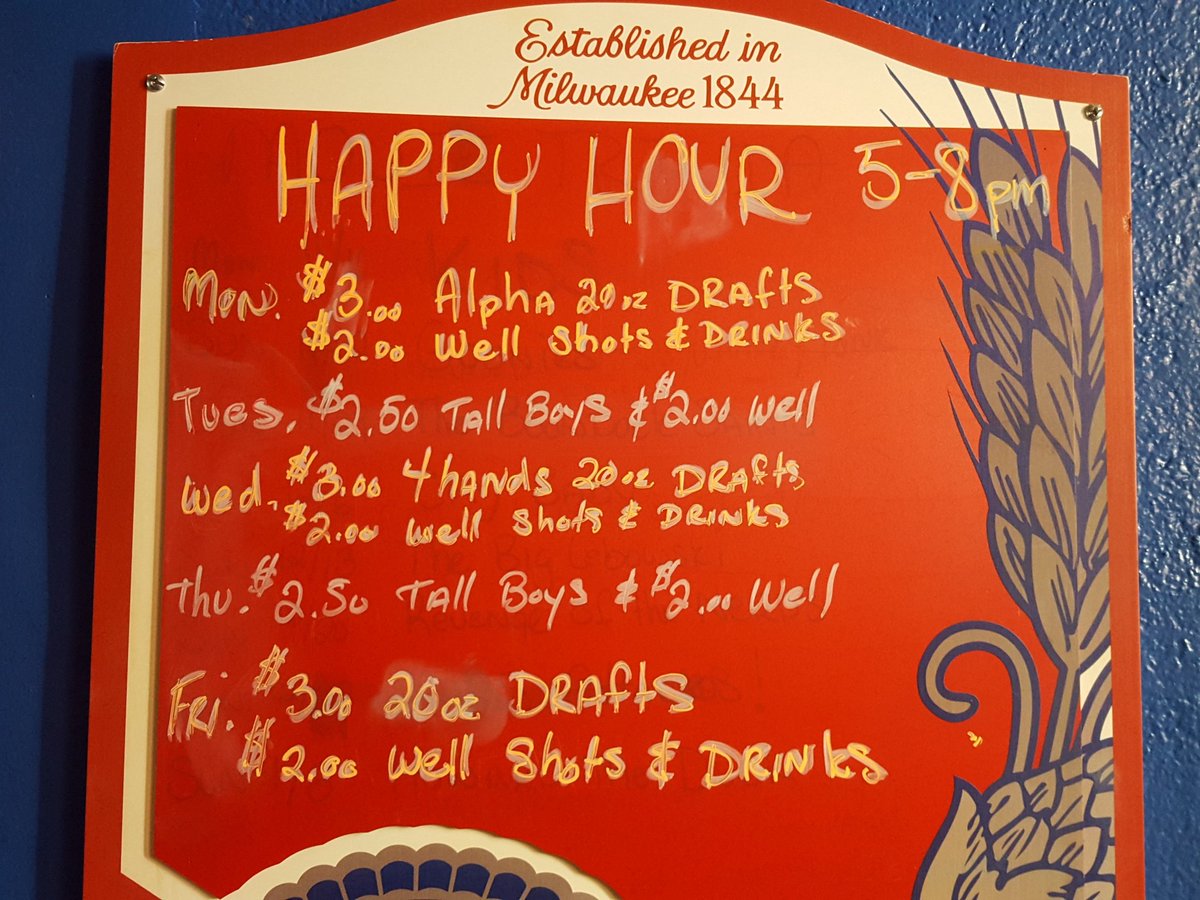 Established in
Milwaukee 1844
HAPPY HOUR 5-8pm
Mon. $3.00 Alpha 20oz DRAfts
$2.00 Well Shots & DRINKS
Tues. $2.50 Tall Boys & $2.00 Well
Wed. $3.00 4 hands 20oz DRAfts
$2.00 Well Shots & DRINKS
Thu. $2.50 Tall Boys & $2.00 Well
FRi. $3.00 20oz DRAfts
$2.00 Well Shots & DRINKS